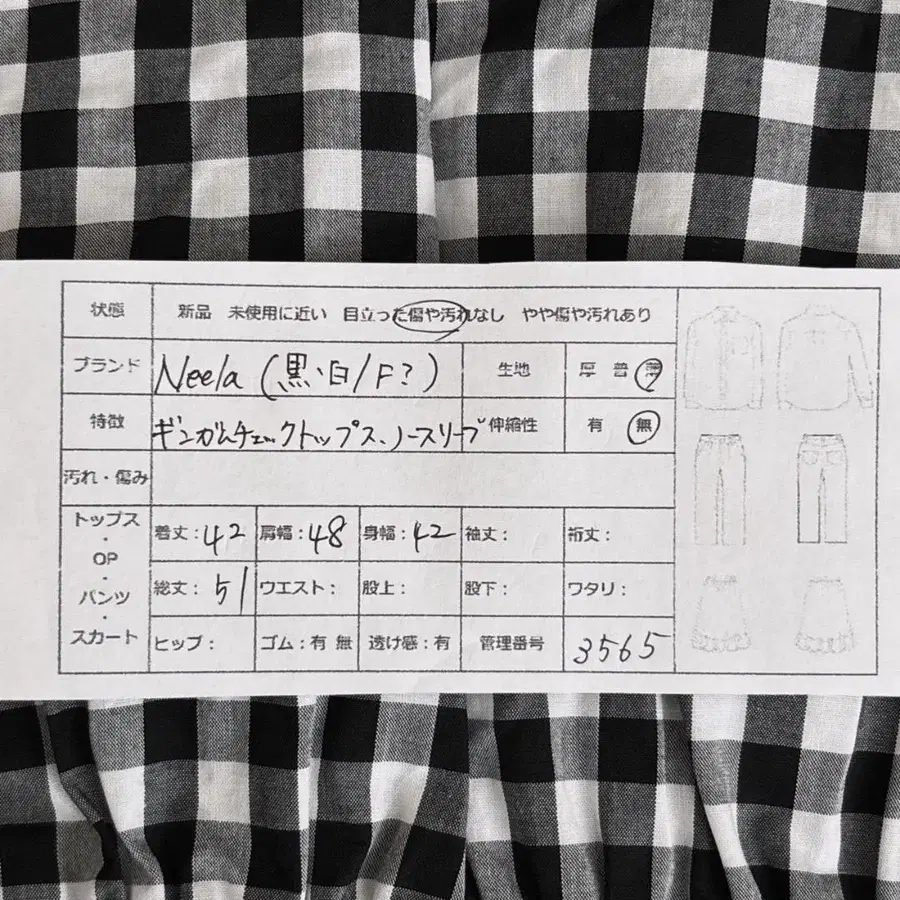 状態 新品 未使用に近い 目立った傷や汚れなし やや傷や汚れあり
ブランド Neela (黒、白/F?) 生地 厚 普 薄
特徴 ギンガムチェックトップス、ノースリーブ 伸縮性 有 無
汚れ・傷み
トップス・OP・パンツ・スカート
着丈：42 肩幅：48 身幅：42 袖丈： 裄丈：
総丈：51 ウエスト： 股上： 股下： ワタリ：
ヒップ： ゴム：有 無 透け感：有 管理番号 3565